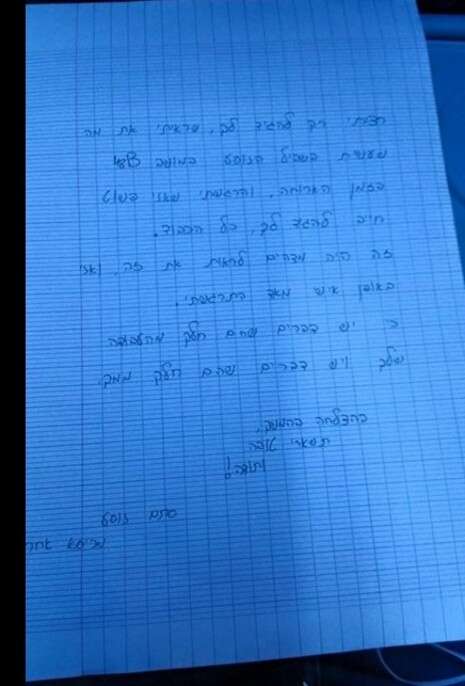 רציתי רק להגיד לך, שראיתי את מה
שעשית בשביל הנוסע במושב
בזמן הארוחה, והרגשתי שאני פשוט
חייב להגיד לך, כל הכבוד.
זה היה מדהים לראות את זה, ואני
באופן אישי מאד התרגשתי.
כי יש דברים שהם חלק מהעבודה
שלך ויש דברים שהם חלק ממך.
בהצלחה בהמשך,
תשארי
סתם נוסע